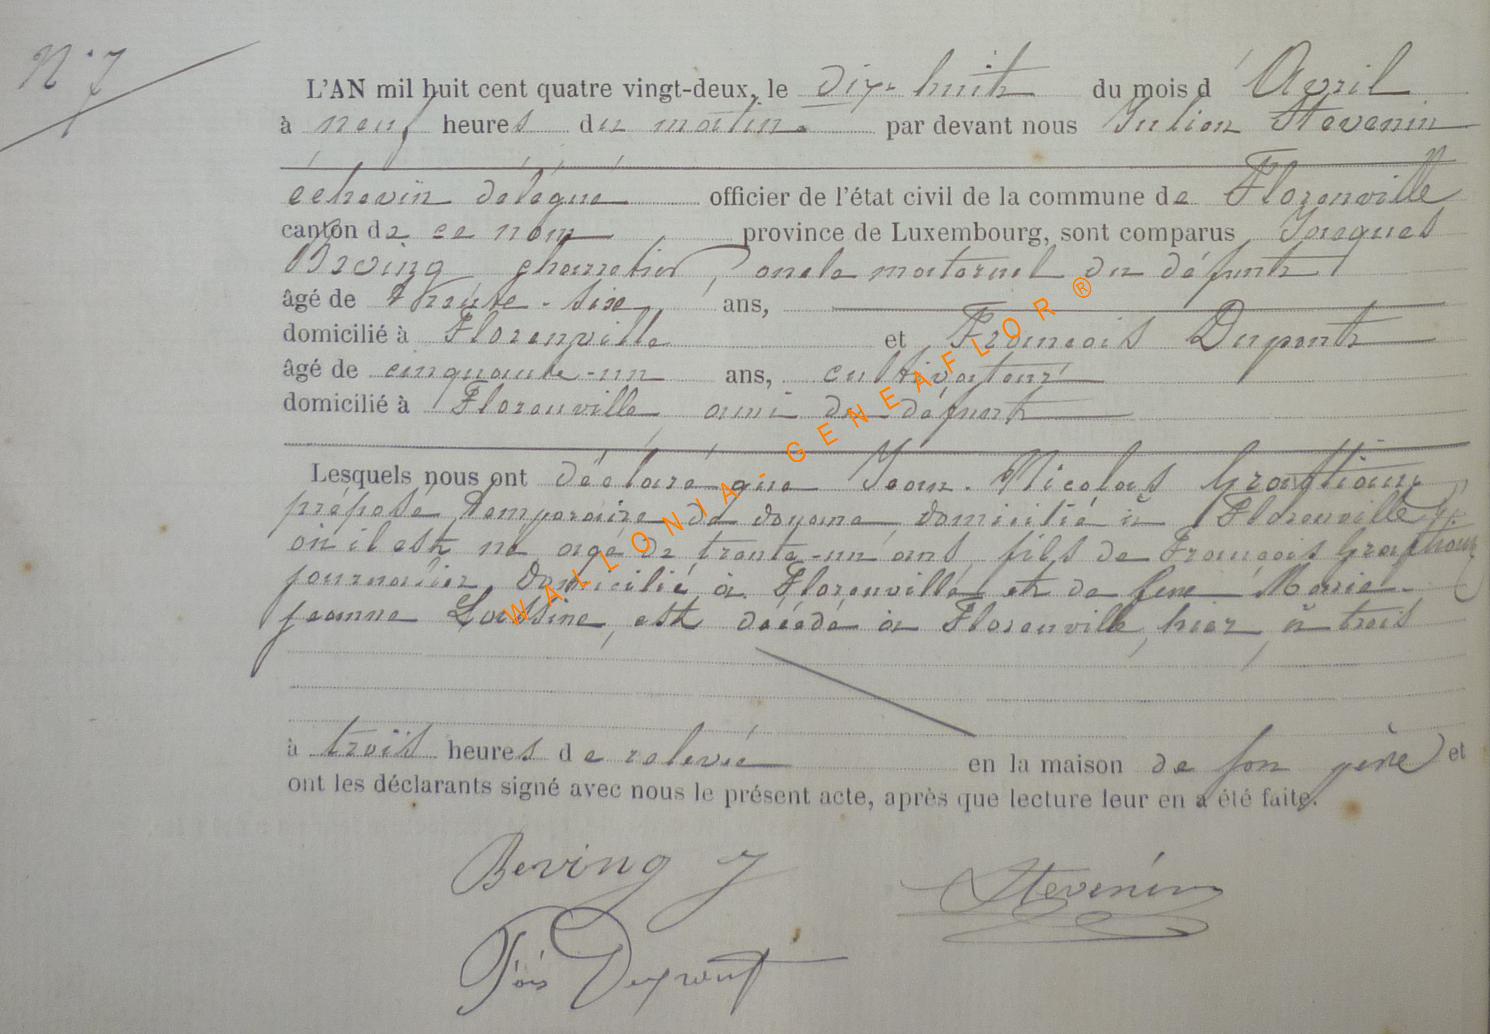 N° 7
L'AN mil huit cent quatre vingt-deux, le dix-huit du mois d'Avril
à neuf heures du matin par devant nous Julien Stevenin
échevin délégué officier de l'état civil de la commune de Florenville
canton de ce nom province de Luxembourg, sont comparus Jacques
Beving charretier, oncle maternel du défunt
âgé de trente-six ans,
domicilié à Florenville et François Dupont
âgé de cinquante-un ans, cultivateur
domicilié à Florenville, ami du défunt
Lesquels nous ont déclaré que Jean-Nicolas
préposé temporaire de douane domicilié à Florenville,
où il est né âgé de trente-un ans, fils de François
journalier, domicilié à Florenville et de feue Marie-
Jeanne est décédé à Florenville, hier, à trois
à trois heures de relevée en la maison de son père et
ont les déclarants signé avec nous le présent acte, après que lecture leur en a été faite.
Beving J
Stevenin
Fçois Dupont
WALLONIA-GENEAFLOR®